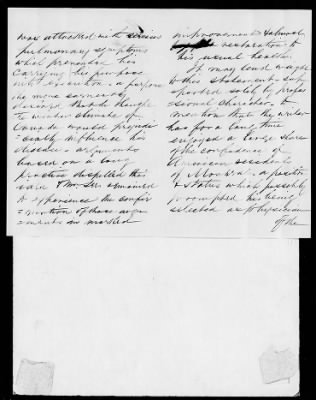 was attacked with serious
pulmonary symptoms
which prevented his
carrying his purpose
into execution - a purpose
he more earnestly
desired that he thought
the winter climate of
Canada would prejudi-
cially influence his
disease - arguments
based on a long
practice dispelled this
idea & Mr. Lee remained
to experience the confir-
mation of those argu-
ments in marked
improvement & almost
restoration to
his usual health.
It may lend weight
to this statement, sup-
ported solely by profes-
sional character, to
mention that the writer
has for a long time
enjoyed a large share
of the confidence of
American residents
of Montreal - a position
& status which possibly
prompted his being
selected as Physician
of the